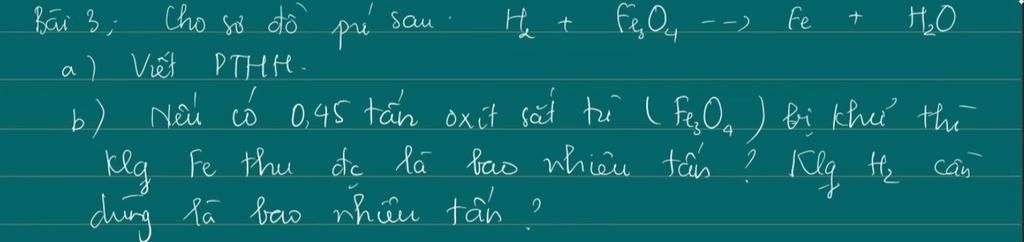 Bài 3: Cho sơ đồ pứ sau: H₂ + Fe₃O₄ --> Fe + H₂O
a) Viết PTHH.
b) Nếu có 0,45 tấn oxit sắt từ (Fe₃O₄) bị khử thì
klg Fe thu đc là bao nhiêu tấn? Klg H₂ cần
dùng là bao nhiêu tấn?